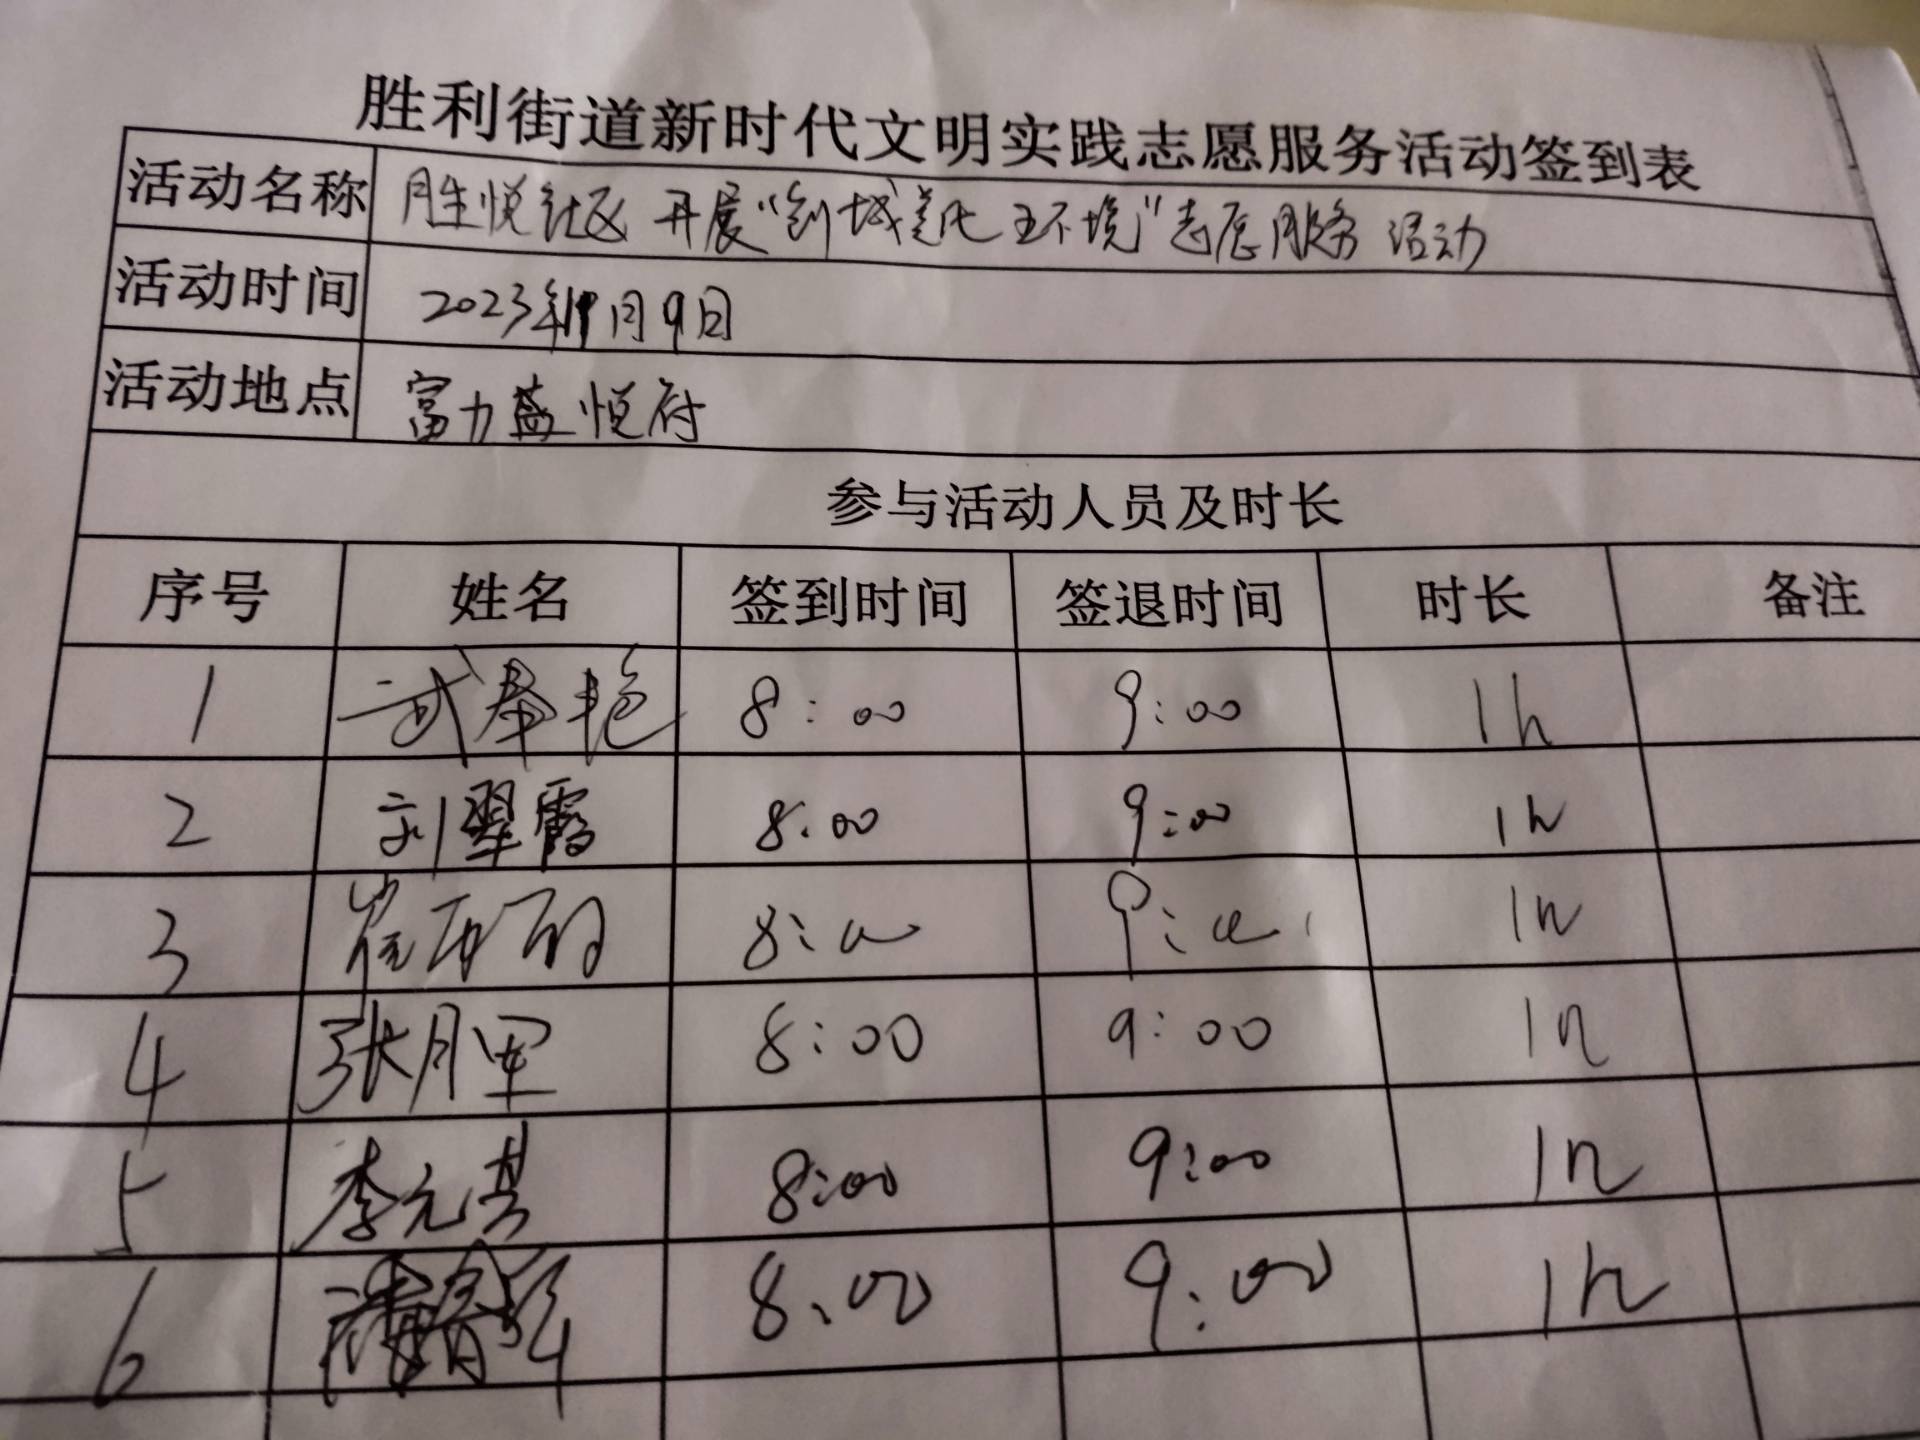 胜利街道新时代文明实践志愿服务活动签到表
活动名称 胜悦社区 开展“创城美化 环境”志愿服务 活动
活动时间 2023年 月9日
活动地点 富力盛悦府
参与活动人员及时长
序号 姓名 签到时间 签退时间 时长 备注
1 武春艳 8:00 9:00 1h
2 刘翠霞 8:00 9:00 1h
3 崔 8:00 9:00 1h
4 张月军 8:00 9:00 1h
5 李元 8:00 9:00 1h
6 8:00 9:00 1h